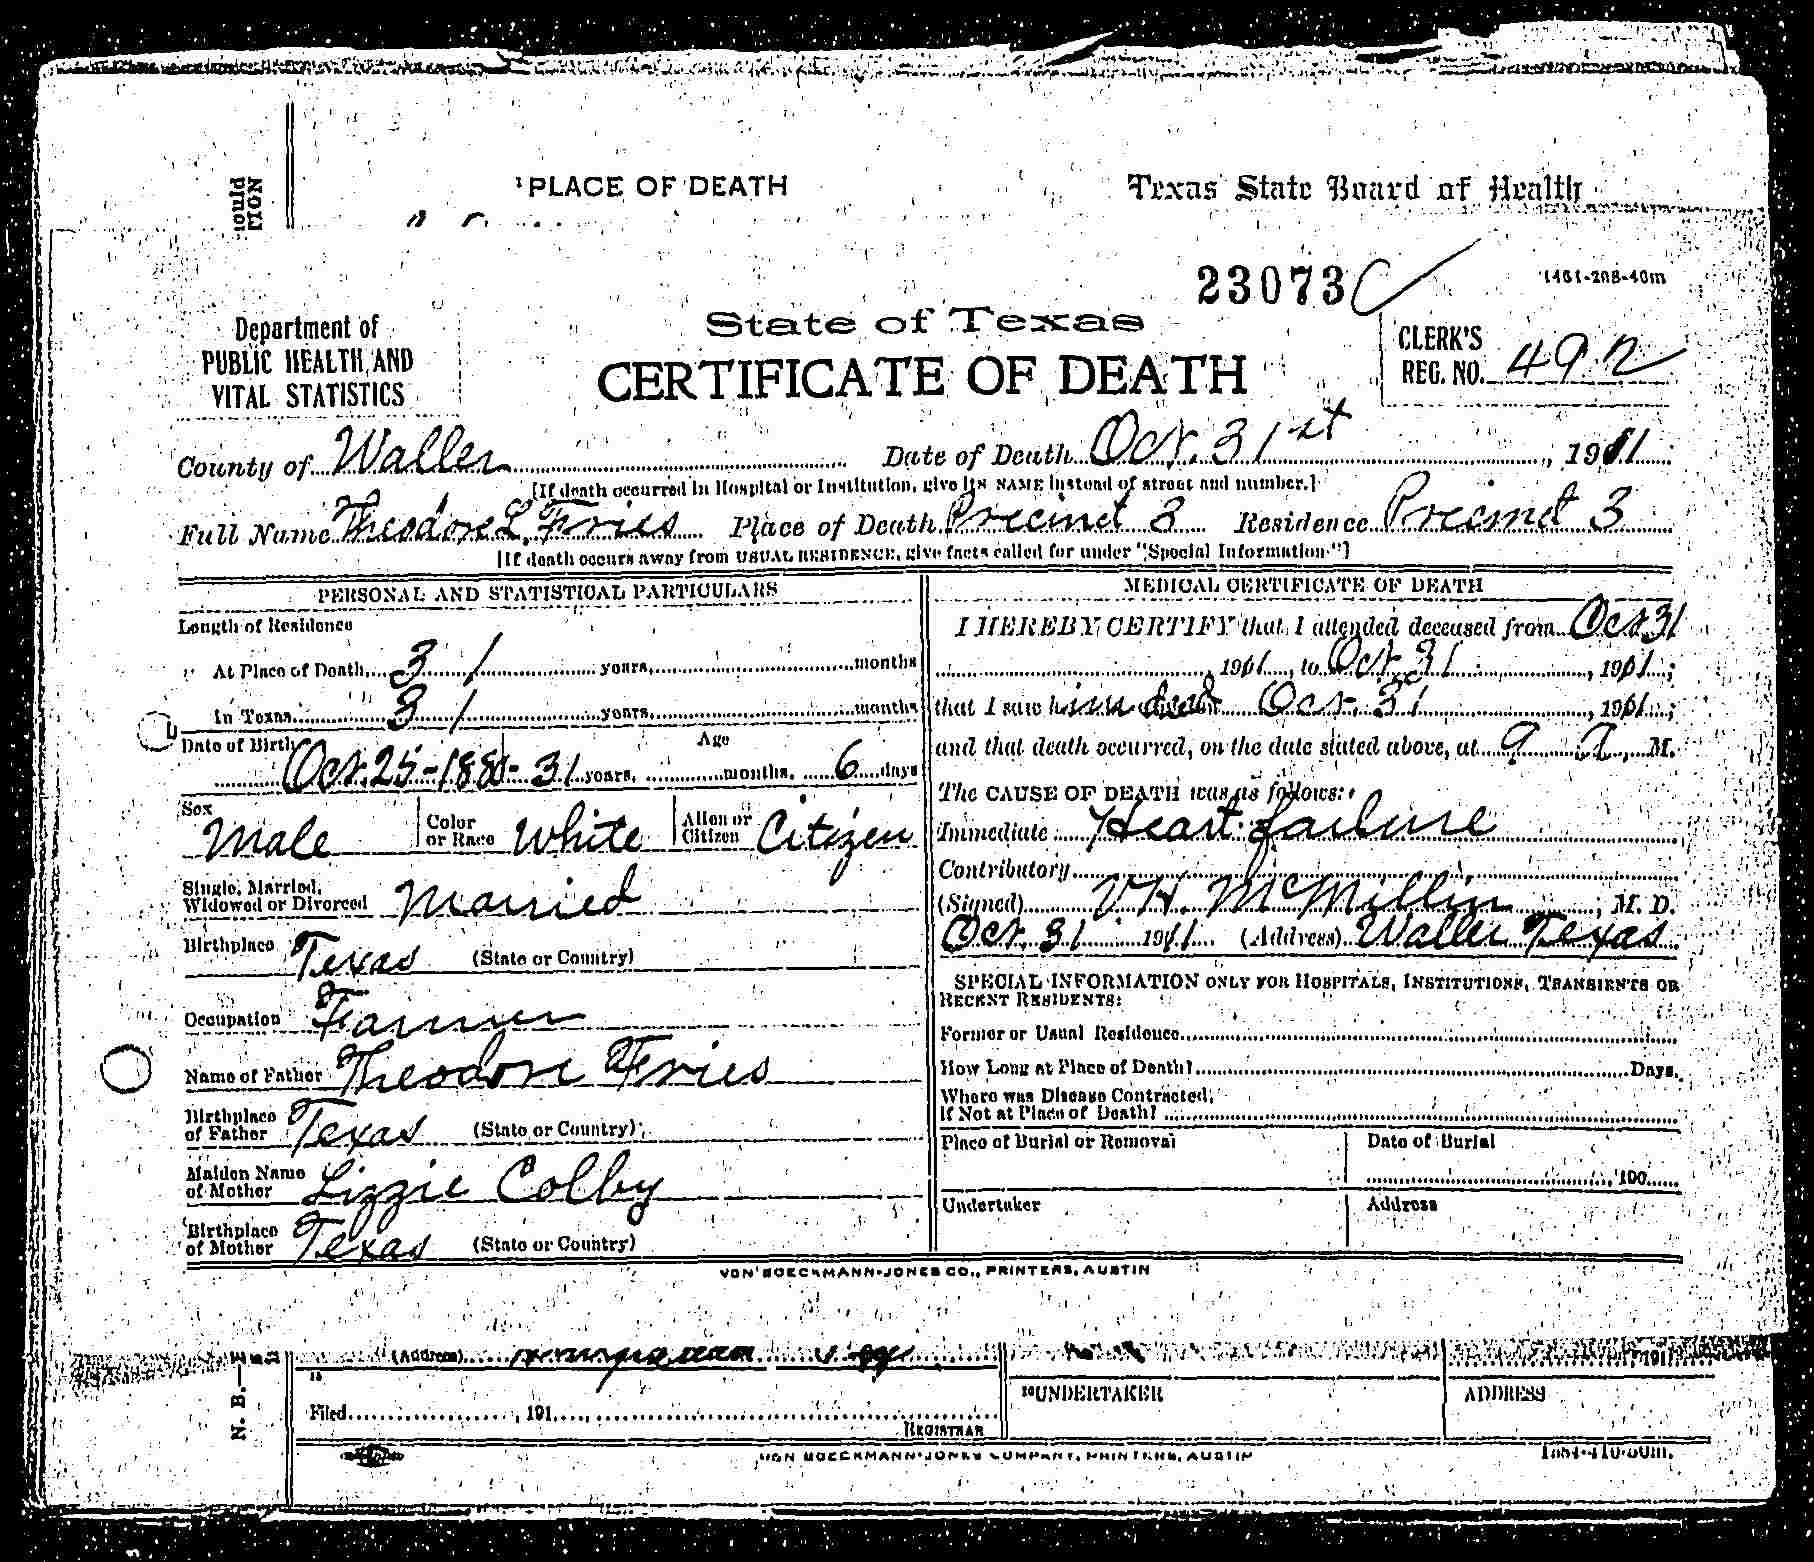 ¹PLACE OF DEATH
Texas State Board of Health
23073
1461-208-40m
Department of
PUBLIC HEALTH AND
VITAL STATISTICS
State of Texas
CERTIFICATE OF DEATH
CLERK'S
REG. NO. 492
County of Waller Date of Death Oct. 31st, 1911
[If death occurred in Hospital or Institution, give its NAME instead of street and number.]
Full Name Theodore L. Fries Place of Death Precinct 3 Residence Precinct 3
[If death occurs away from USUAL RESIDENCE, give facts called for under "Special Information."]
PERSONAL AND STATISTICAL PARTICULARS
Length of Residence
At Place of Death 31 years, months
In Texas 31 years, months
Date of Birth Age
Oct. 25-1880- 31 years, months, 6 days
Sex Male Color or Race White Alien or Citizen Citizen
Single, Married, Widowed or Divorced Married
Birthplace Texas (State or Country)
Occupation Farmer
Name of Father Theodore Fries
Birthplace of Father Texas (State or Country)
Maiden Name of Mother Lizzie Colby
Birthplace of Mother Texas (State or Country)
MEDICAL CERTIFICATE OF DEATH
I HEREBY CERTIFY that I attended deceased from Oct 31
, 1911, to Oct. 31, 1911;
that I saw him dead Oct. 31, 1911;
and that death occurred, on the date stated above, at 9 M.
The CAUSE OF DEATH was as follows:
Immediate Heart failure
Contributory
(Signed) V.H. McMillin, M. D.
Oct. 31 1911 (Address) Waller Texas
SPECIAL INFORMATION ONLY FOR HOSPITALS, INSTITUTIONS, TRANSIENTS OR
RECENT RESIDENTS:
Former or Usual Residence
How Long at Place of Death? Days.
Where was Disease Contracted,
If Not at Place of Death?
Place of Burial or Removal Date of Burial
, 190
Undertaker Address
VON BOECKMANN-JONES CO., PRINTERS, AUSTIN
N. B.—
(Address)
, 191
Filed , 191
REGISTRAR
²⁰UNDERTAKER ADDRESS
VON BOECKMANN-JONES COMPANY, PRINTERS, AUSTIN